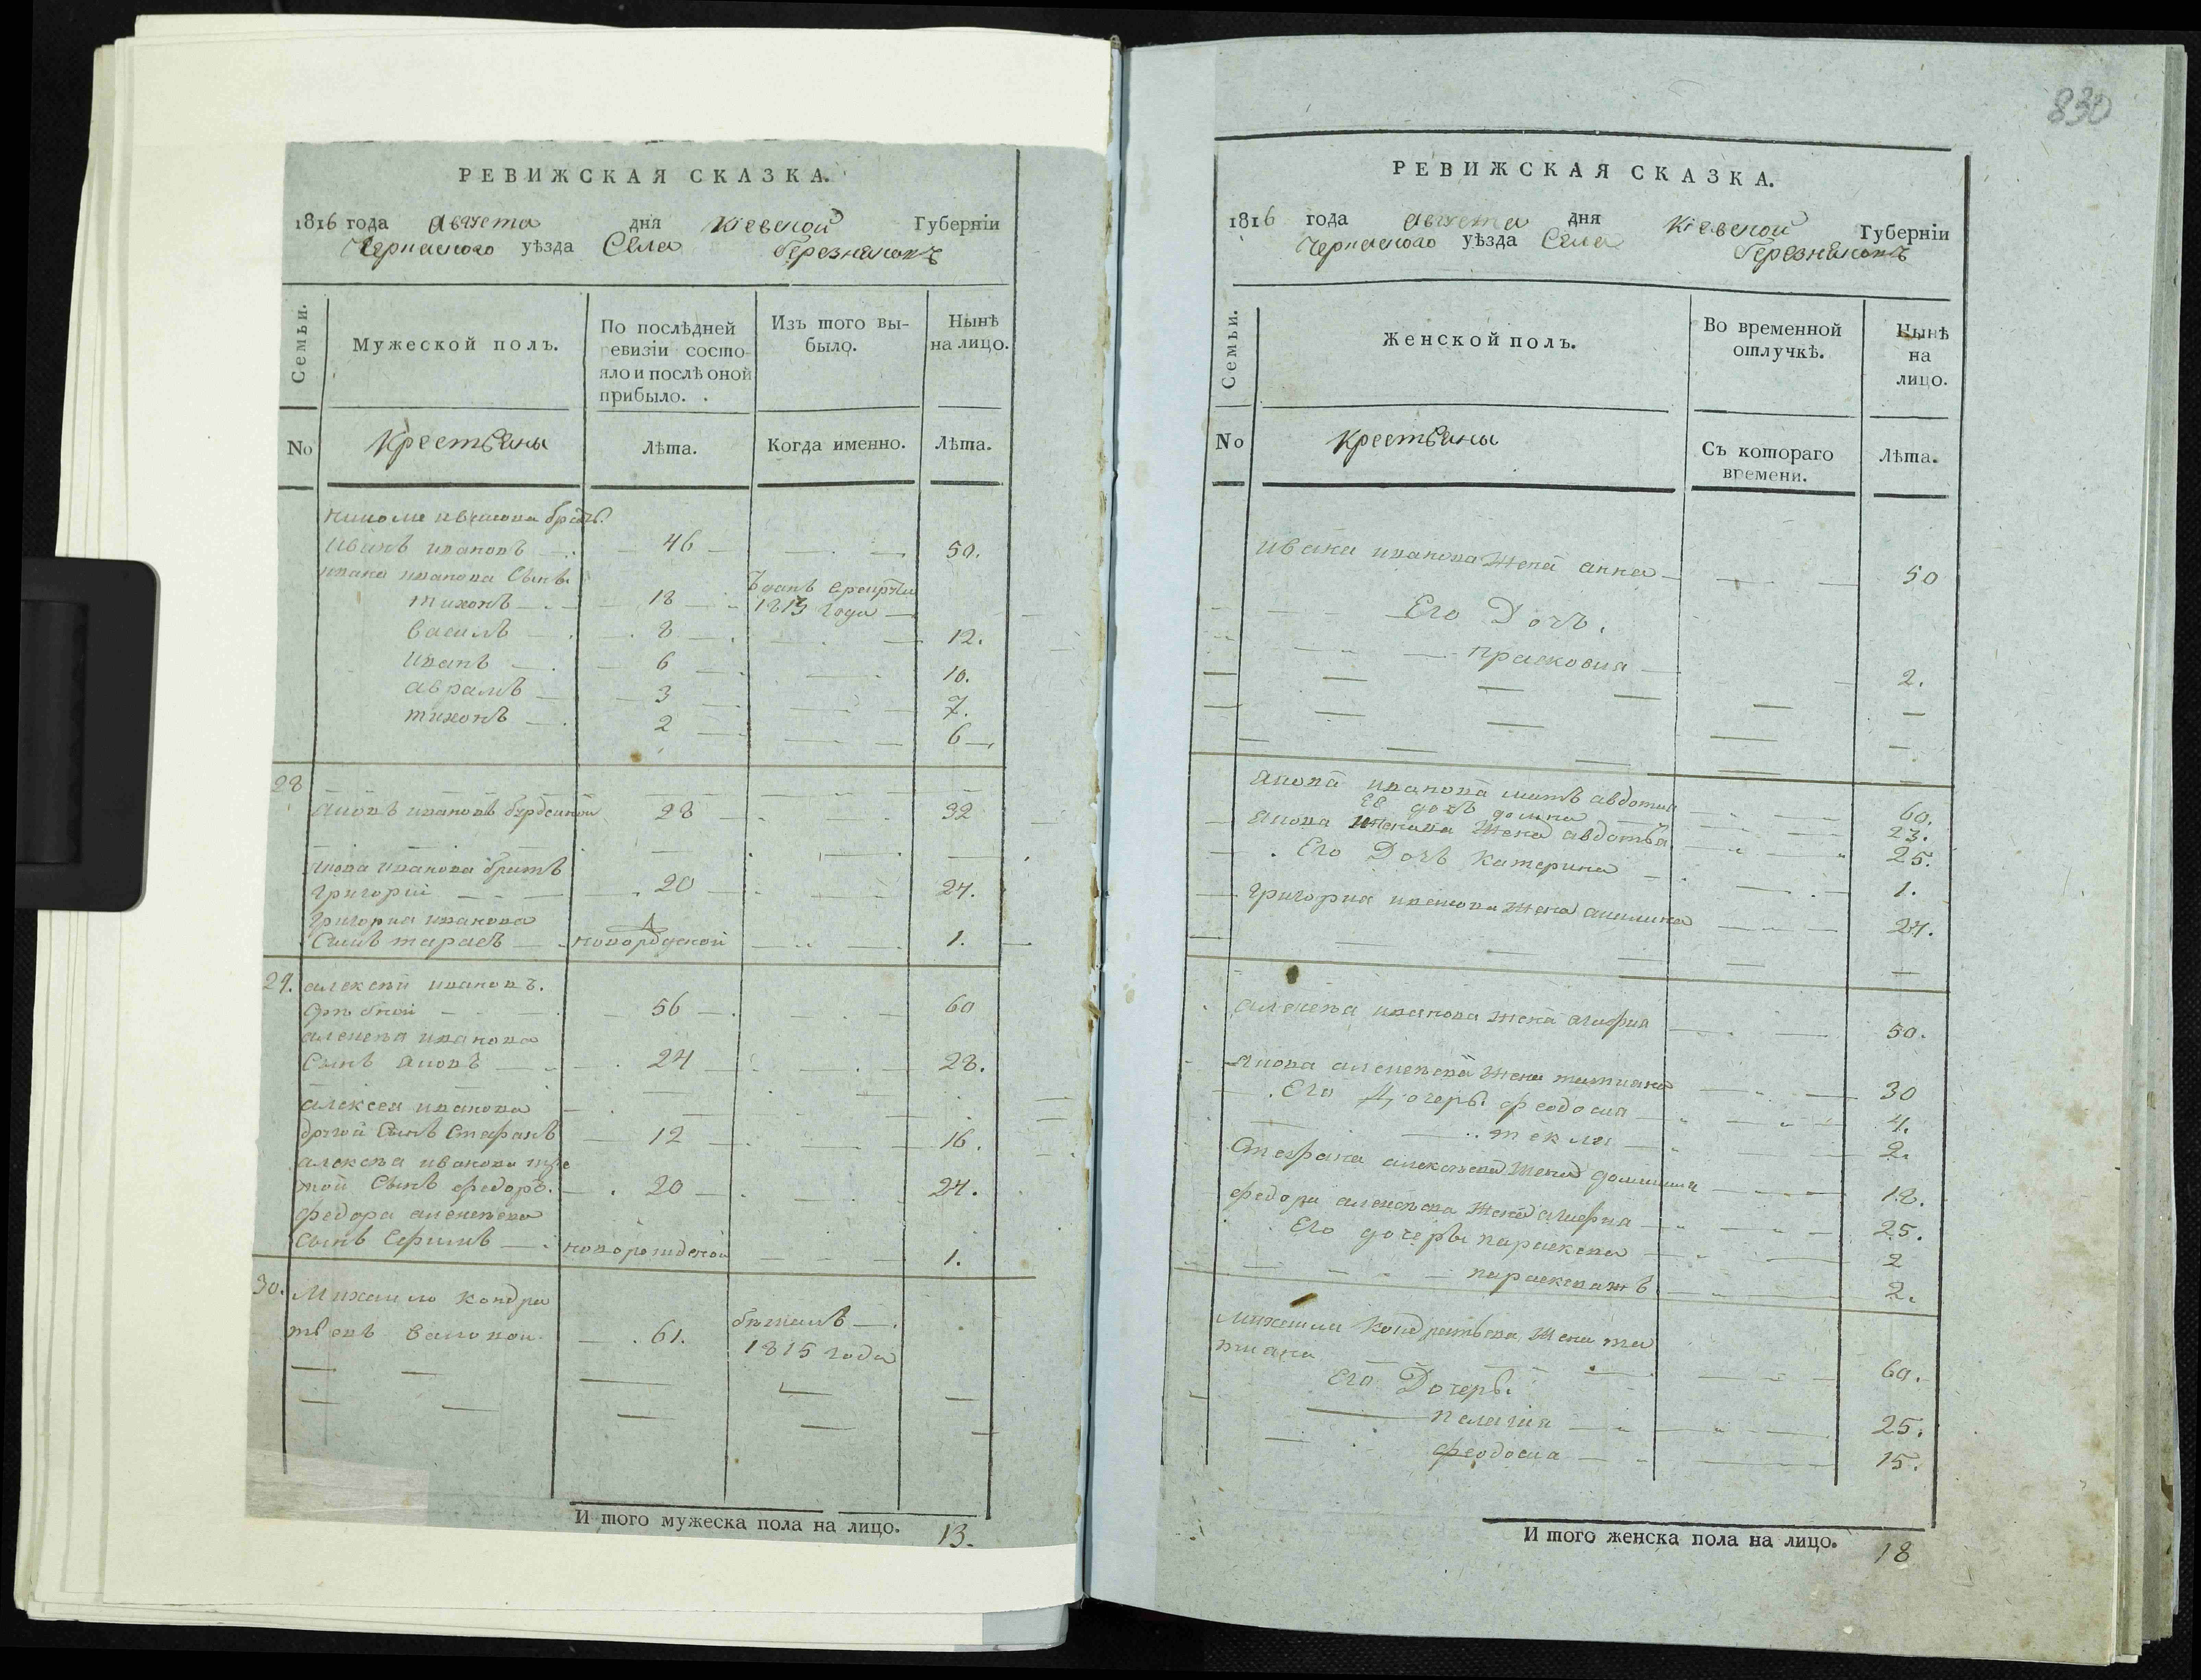 РЕВИЖСКАЯ СКАЗКА.
1816 года августа дня Кіевской Губерніи
Черкаского уѣзда Села Березняковъ
Семьи.
Мужеской полъ.
По послѣдней ревизіи состо-
яло и послѣ оной
прибыло.
Изъ того вы-
было.
Нынѣ
на лицо.
No
Крестьяны
Лѣта.
Когда именно.
Лѣта.
иванова братъ
Иванъ ивановъ 46 50.
ивана иванова Сынъ
тихонъ 18 1813 года
василь 8 12.
иванъ 6 10.
аврамъ 3 7.
тихонъ 2 6
28
ивановъ 28 32
иванова братъ
григорий 20 24.
григория иванова
Сынъ тарасъ новорожденой 1.
29. алексѣй ивановъ.
56 60
алексѣя иванова
Сынъ 24 28.
алексея иванова
другой Сынъ Стефанъ 12 16.
алексѣя иванова тре
той Сынъ федоръ. 20 24.
федора алексѣева
Сынъ Ефимъ новорожденой 1.
30. Михаило Кондра
тьевъ 61. бѣжалъ
1815 года
И того мужеска пола на лицо. 13.
830
РЕВИЖСКАЯ СКАЗКА.
1816 года августа дня Кіевской Губерніи
Черкаского уѣзда Села Березняковъ
Семьи.
Женской полъ.
Во временной
отлучкѣ.
Нынѣ
на
лицо.
No
Крестьяны
Съ котораго
времени.
Лѣта.
ивана иванова жена анна 50
Его Дочь.
прасковия 2.
иванова мать авдотия 60.
Её дочь 23.
жена авдотья 25.
Его Дочь Катерина 1.
григория иванова жена акилина 24.
алексѣя иванова жена агафия 50.
алексѣева жена татиана 30
Его Дочеры феодосия 4.
текля 2.
Стефана алексѣева жена 18.
федора алексѣева жена агафия 25.
Его дочеры параскева 2
параскева 2.
Михаила Кондратьева жена та
тиана 60.
Его Дочеры
пелагия 25.
феодосия 15.
И того женска пола на лицо. 18